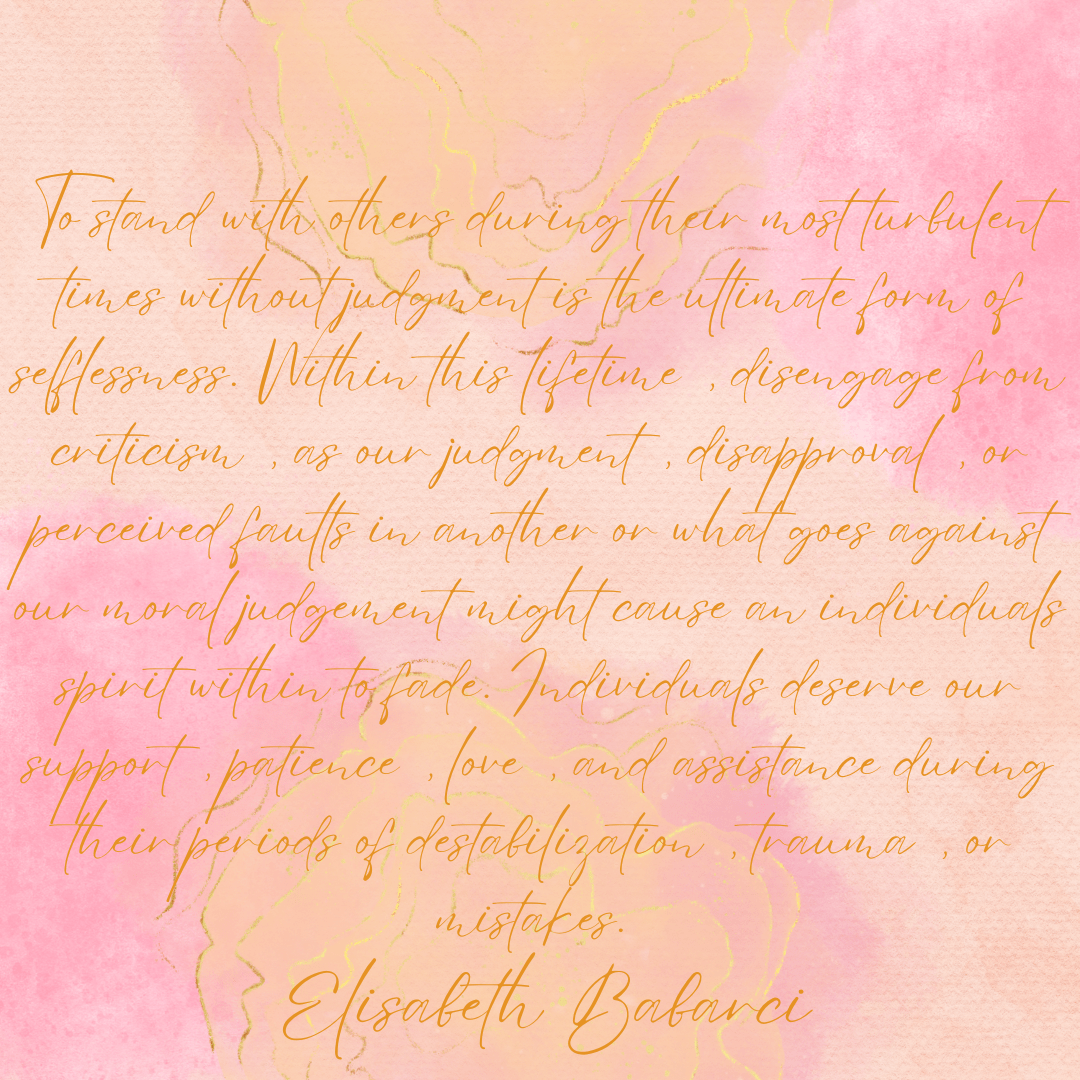 To stand with others during their most turbulent
times without judgment is the ultimate form of
selflessness. Within this lifetime , disengage from
criticism , as our judgment , disapproval , or
perceived faults in another or what goes against
our moral judgement might cause an individuals
spirit within to fade. Individuals deserve our
support , patience , love , and assistance during
their periods of destabilization , trauma , or
mistakes.
Elisabeth Babarci